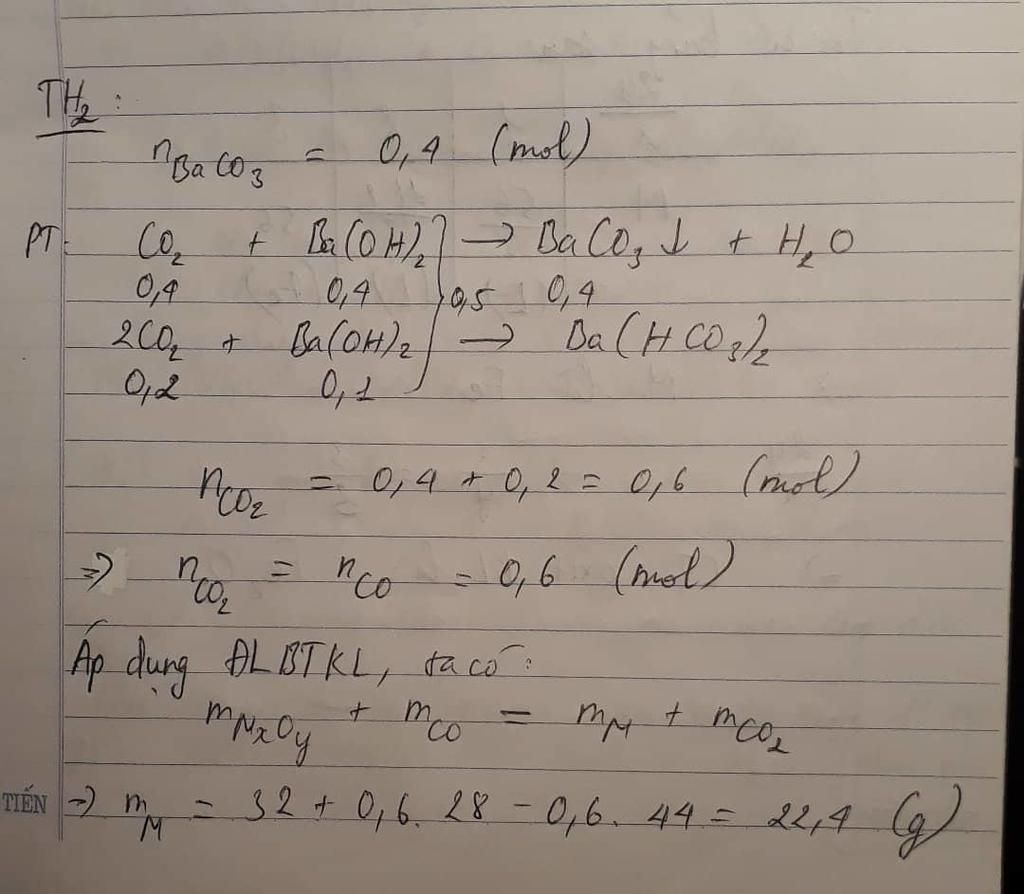 TH₂ :
n_BaCO₃ = 0,4 (mol)
PT: CO₂ + Ba(OH)₂ → BaCO₃↓ + H₂O
0,4 0,4 0,5 0,4
2CO₂ + Ba(OH)₂ → Ba(HCO₃)₂
0,2 0,1
n_CO₂ = 0,4 + 0,2 = 0,6 (mol)
=> n_CO₂ = n_CO = 0,6 (mol)
Áp dụng ĐLBTKL, ta có :
m_MxOy + m_CO = m_M + m_CO₂
TIẾN => m_M = 32 + 0,6. 28 - 0,6. 44 = 22,4 (g)